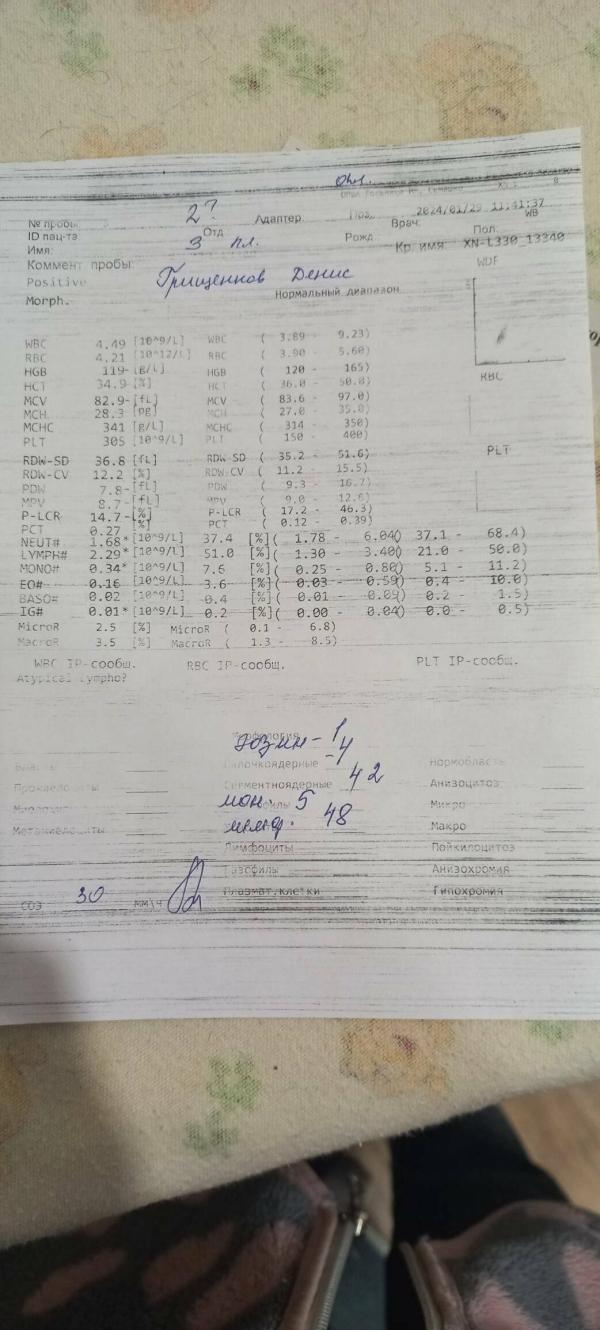 2?
№ пробы: Адаптер Поз. 2024/01/29 11:41:37
ID пац-та: Отд Врач: WB
Имя: 3 пл. Рожд Кр. имя XN-L330_13340
Пол:
Коммент. пробы:
Positive Грищенков Денис WDF
Morph. Нормальный диапазон
WBC 4.49 [10^9/L] WBC ( 3.89 - 9.23)
RBC 4.21 [10^12/L] RBC ( 3.90 - 5.60)
HGB 119- [g/L] HGB ( 120 - 165)
HCT 34.9- [%] HCT ( 36.0 - 50.0)
MCV 82.9- [fL] MCV ( 83.6 - 97.0)
MCH 28.3 [pg] MCH ( 27.0 - 35.0)
MCHC 341 [g/L] MCHC ( 314 - 350)
PLT 305 [10^9/L] PLT ( 150 - 400)
RBC
PLT
RDW-SD 36.8 [fL] RDW-SD ( 35.2 - 51.6)
RDW-CV 12.2 [%] RDW-CV ( 11.2 - 15.5)
PDW 7.8- [fL] PDW ( 9.3 - 16.7)
MPV 8.7- [fL] MPV ( 9.0 - 12.6)
P-LCR 14.7- [%] P-LCR ( 17.2 - 46.3)
PCT 0.27 [%] PCT ( 0.12 - 0.39)
NEUT# 1.68* [10^9/L] 37.4 [%]( 1.78 - 6.04() 37.1 - 68.4)
LYMPH# 2.29* [10^9/L] 51.0 [%]( 1.30 - 3.40() 21.0 - 50.0)
MONO# 0.34* [10^9/L] 7.6 [%]( 0.25 - 0.80() 5.1 - 11.2)
EO# 0.16 [10^9/L] 3.6 [%]( 0.03 - 0.59() 0.4 - 10.0)
BASO# 0.02 [10^9/L] 0.4 [%]( 0.01 - 0.09() 0.2 - 1.5)
IG# 0.01* [10^9/L] 0.2 [%]( 0.00 - 0.04() 0.0 - 0.5)
MicroR 2.5 [%] MicroR ( 0.1 - 6.8)
MacroR 3.5 [%] MacroR ( 1.3 - 8.5)
WBC IP-сообщ. RBC IP-сообщ. PLT IP-сообщ.
Atypical Lympho?
Морфология
эозин - 1
Бласты Палочкоядерные - 4 Нормобласты
Промиелоциты Сегментноядерные 42 Анизоцитоз
мон. 5 Микро
Метамиелоциты 48 Макро
Лимфоциты Пойкилоцитоз
Базофилы Анизохромия
Плазмат.клетки Гипохромия
СОЭ 30 мм\ч